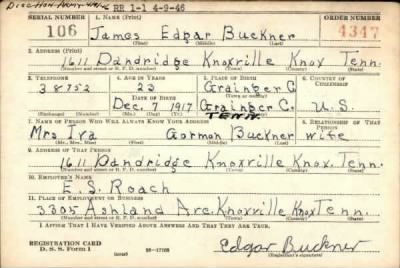 RR 1-1 4-9-46
SERIAL NUMBER 1. NAME (Print) ORDER NUMBER
106 James Edgar Buckner 4347
(First) (Middle) (Last)
2. ADDRESS (Print)
1611 Dandridge Knoxville Knox Tenn.
(Number and street or R. F. D. number) (Town) (County) (State)
3. TELEPHONE 4. AGE IN YEARS 5. PLACE OF BIRTH 6. COUNTRY OF CITIZENSHIP
38752 23 Grainger C
DATE OF BIRTH (Town or county)
Dec. 7 1917 Grainger C. U.S.
(Mo.) (Day) (Yr.) TENN
7. NAME OF PERSON WHO WILL ALWAYS KNOW YOUR ADDRESS 8. RELATIONSHIP OF THAT PERSON
Mrs Ira Gormon Buckner Wife
(Mr., Mrs., Miss) (First) (Middle) (Last)
9. ADDRESS OF THAT PERSON
1611 Dandridge Knoxville Knox. Tenn.
(Number and street or R. F. D. number) (Town) (County) (State)
10. EMPLOYER'S NAME
E.S. Roach
11. PLACE OF EMPLOYMENT OR BUSINESS
3305 Ashland Ave. Knoxville Knox Tenn.
(Number and street or R. F. D. number) (Town) (County) (State)
I AFFIRM THAT I HAVE VERIFIED ABOVE ANSWERS AND THAT THEY ARE TRUE.
REGISTRATION CARD
D. S. S. Form 1 (over) Edgar Buckner
(Registrant's signature)